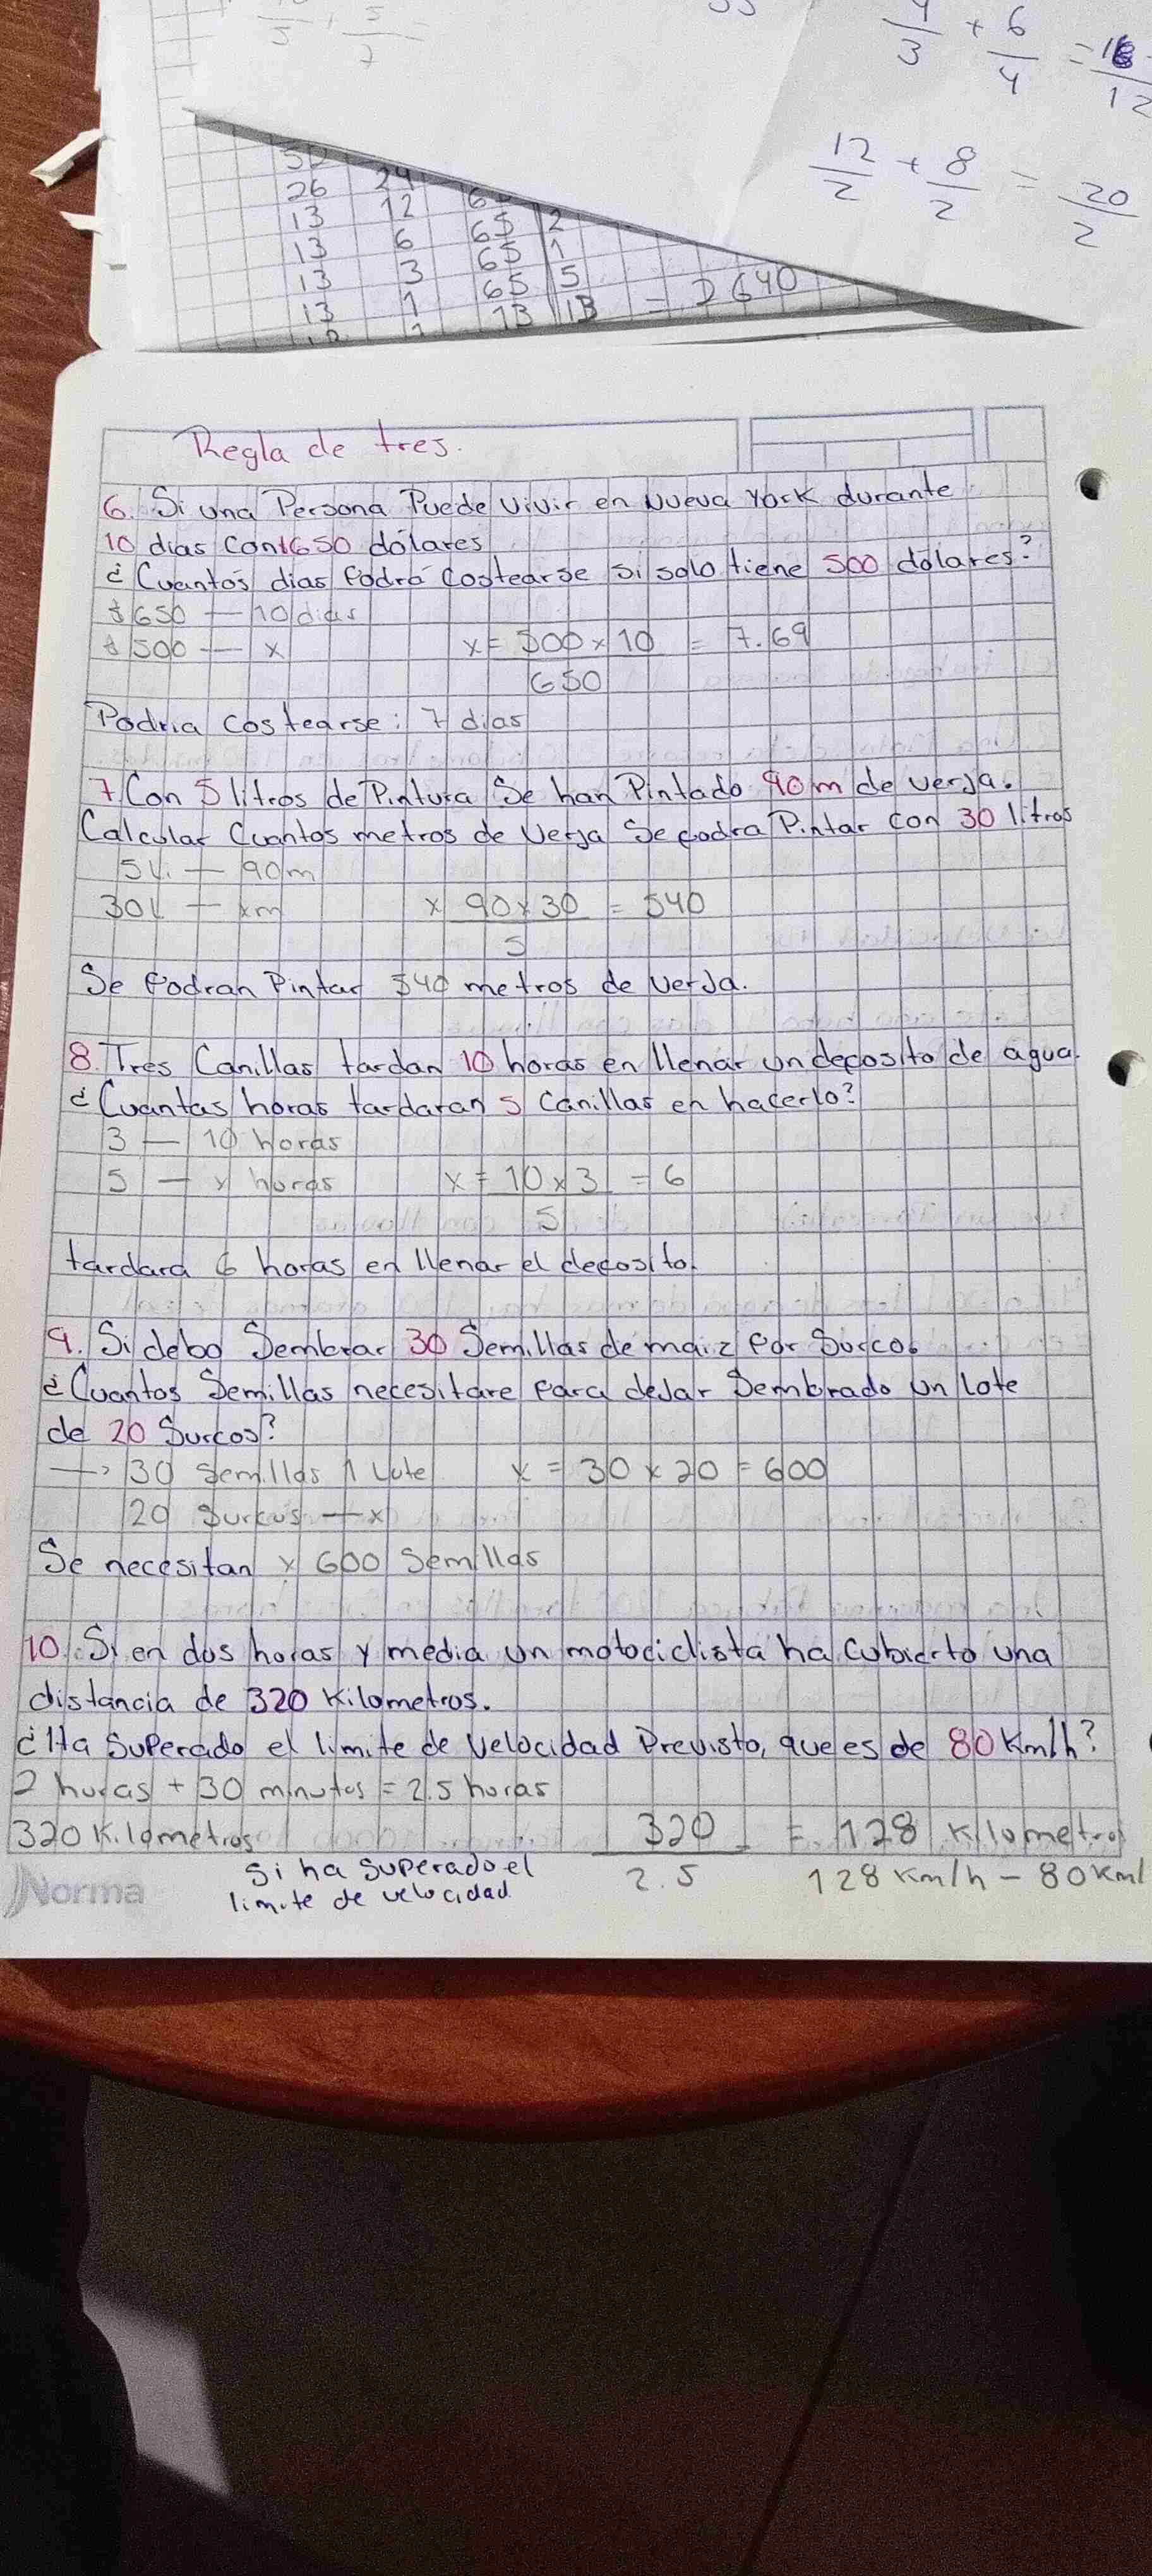 4/3 + 6/4 = 16/12
12/2 + 8/2 = 20/2
26 24
13 12 65 2
13 6 65 1
13 3 65 5
13 1 13 13 = 2640
Regla de tres.
6. Si una Persona Puede vivir en Nueva York durante
10 dias con 650 dólares
¿Cuantos dias Podra Costearse si solo tiene 500 dólares?
$650 — 10 dias
$500 — x x = 500 x 10 = 7.69
650
Podria costearse: 7 dias
7. Con 5 litros de Pintura Se han Pintado 90m de verja.
Calcular Cuantos metros de Verja Se Podra Pintar con 30 litros
5L — 90m
30L — xm x 90 x 30 = 540
5
Se Podran Pintar 540 metros de verja.
8. Tres Canillas tardan 10 horas en llenar un deposito de agua.
¿Cuantas horas tardaran 5 Canillas en hacerlo?
3 — 10 horas
5 — x horas x = 10 x 3 = 6
5
tardara 6 horas en llenar el deposito.
9. Si debo Sembrar 30 Semillas de maiz por Surco.
¿Cuantos Semillas necesitare Para dejar Sembrado un lote
de 20 Surcos?
→ 30 semillas 1 Lote x = 30 x 20 = 600
20 Surcos — x
Se necesitan x 600 semillas
10. Si en dos horas y media un motociclista ha Cubierto una
distancia de 320 Kilometros.
¿Ha Superado el limite de Velocidad Previsto, que es de 80 Km/h?
2 horas + 30 minutos = 2.5 horas
320 Kilometros 320 = 128 Kilometros
Si ha superado el 2.5 128 Km/h - 80 Km/
limite de velocidad
Norma